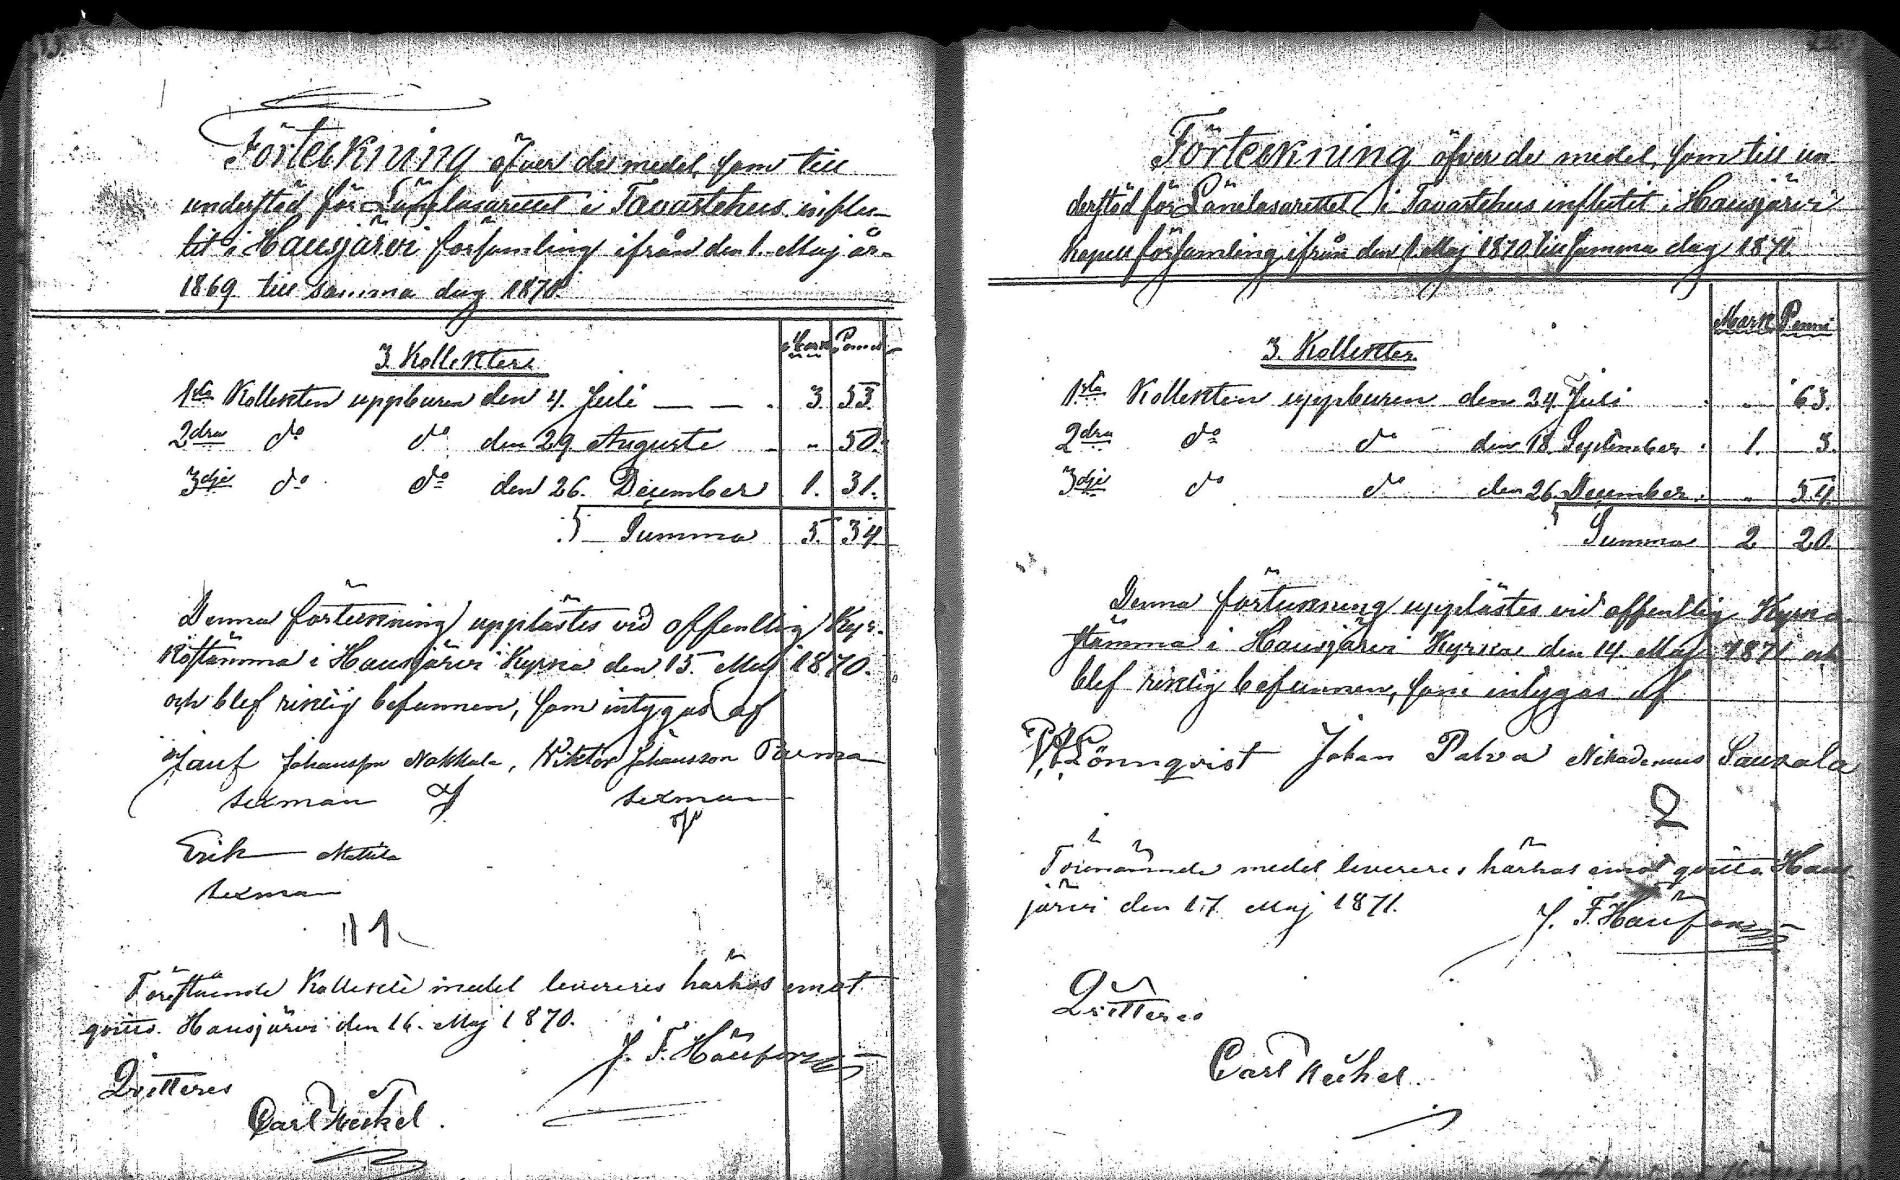 Förteckning öfver de medel, som till
understöd för Länslasarettet i Tavastehus influ-
tit i Hausjärvi församling ifrån den 1. Maj år
1869 till samma dag 1870.
Mark Penni
3. Kollekter.
1sta Kollekten uppburen den 4. Juli — — . 3. 53.
2dra do do den 29 Augusti „ 50.
3dje do do den 26. December 1. 31.
Summa 5. 34
Denna förteckning upplästes vid offentlig Kyr-
kostämma i Hausjärvi Kyrka den 15. Maj 1870.
och blef riktig befunnen, som intygas af
Johansson Nokkala, Wiktor Johansson
sexman sexman
Erik Mattila
sexman
Förestående Kollekt medel levereres härhos emot
qvitto. Hausjärvi den 16. Maj 1870.
J. F.
Qvitteres
Carl
Förteckning öfver de medel, som till un
derstöd för Länslasarettet i Tavastehus influtit i Hausjärvi
kapell församling ifrån den 1. Maj 1870 till samma dag 1871.
Mark Penni
3. Kollekter
1sta Kollekten uppburen den 24. Juli „ 63.
2dra do do den 18. September 1. 3.
3dje do do den 26. December „ 54.
Summa 2 20.
Denna förteckning upplästes vid offentlig Kyrko
stämma i Hausjärvi Kyrka den 14. Maj 1871 och
blef riktig befunnen, som intygas af
Lönnqvist Johan Palva Nikodemus
Förenämnde medel levereres härhos emot qvitto. Haus-
järvi den 17. Maj 1871.
J. F.
Qvitteres
Carl